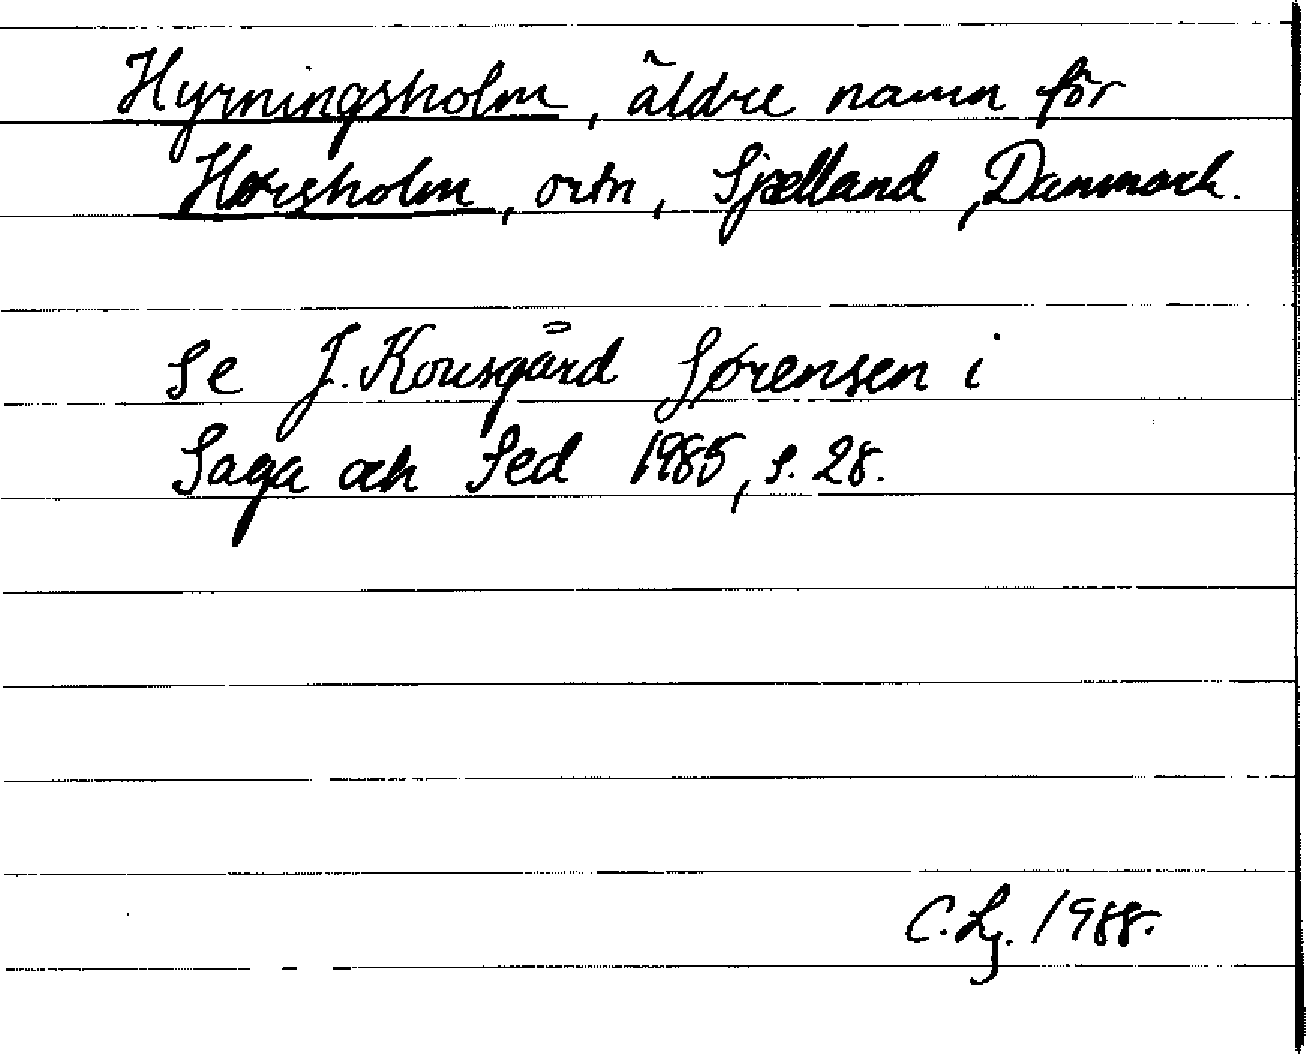 Hyrningsholm, äldre namn för
Hørsholm, ortn, Sjælland, Danmark.
Se J. Kousgård Sørensen i
Saga och Sed 1985, s. 28.
C. Lj. 1988.